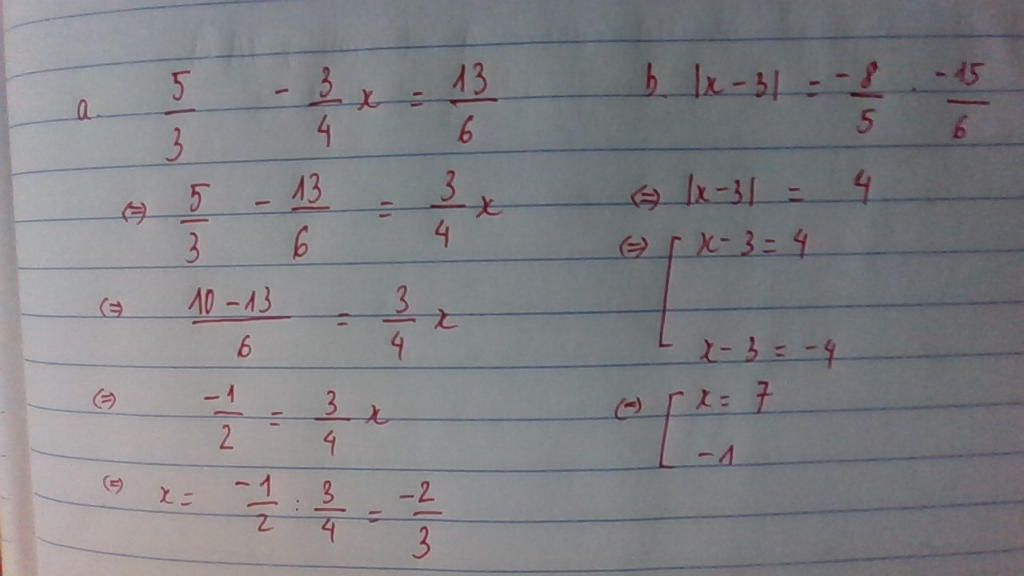 a. 5/3 - 3/4 x = 13/6
(=) 5/3 - 13/6 = 3/4 x
(=) 10-13/6 = 3/4 x
(=) -1/2 = 3/4 x
(=) x = -1/2 : 3/4 = -2/3
b. |x-3| = -8/5 . -15/6
(=) |x-3| = 4
(=) [ x-3 = 4
x-3 = -4
(=) [ x = 7
-1